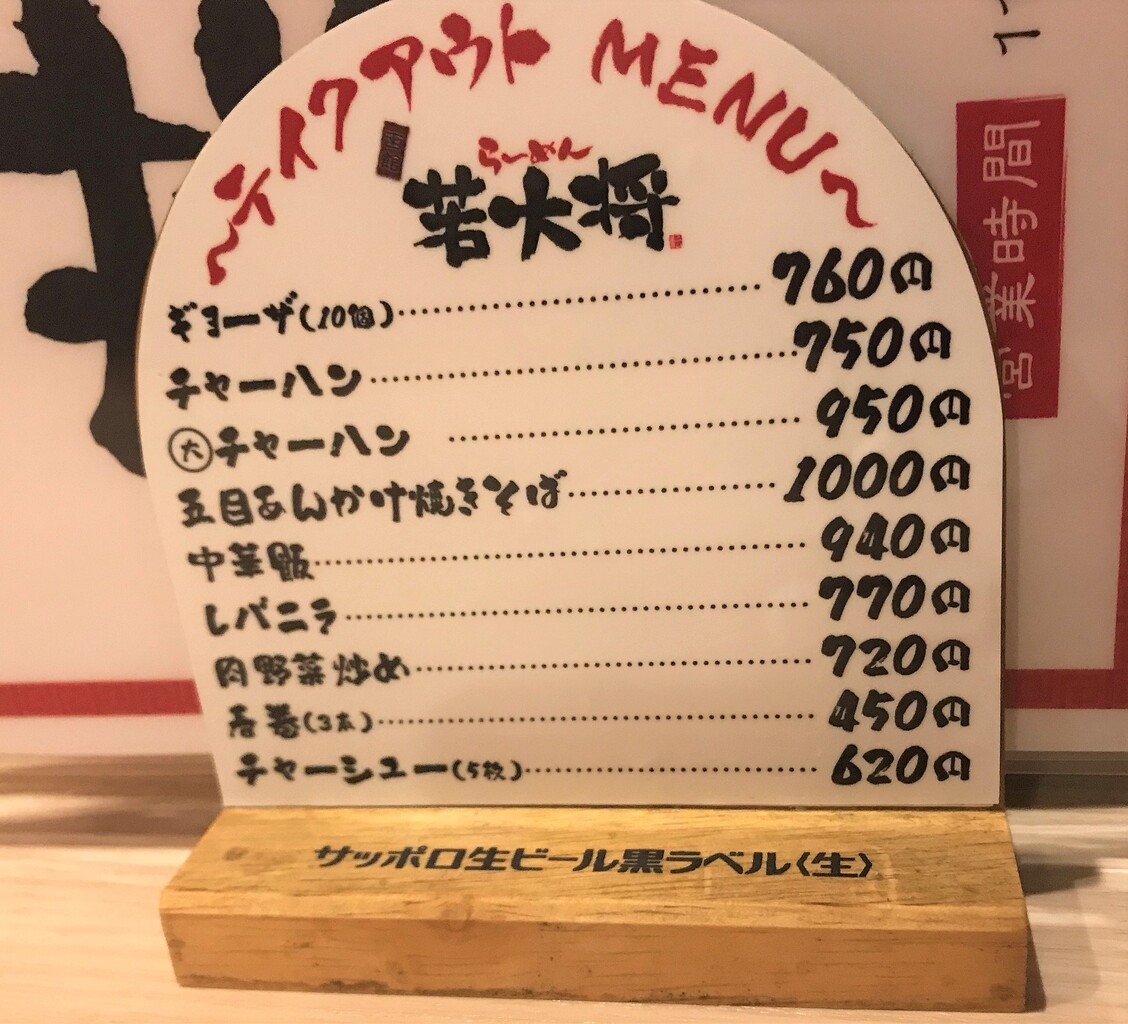 〜テイクアウト MENU〜
らーめん
若大将
ギョーザ(10個)‥‥‥760円
チャーハン‥‥‥750円
㊛チャーハン‥‥‥950円
五目あんかけ焼きそば‥‥‥1000円
中華飯‥‥‥940円
レバニラ‥‥‥770円
肉野菜炒め‥‥‥720円
春巻(3本)‥‥‥450円
チャーシュー(5枚)‥‥‥620円
サッポロ生ビール黒ラベル〈生〉
営業時間